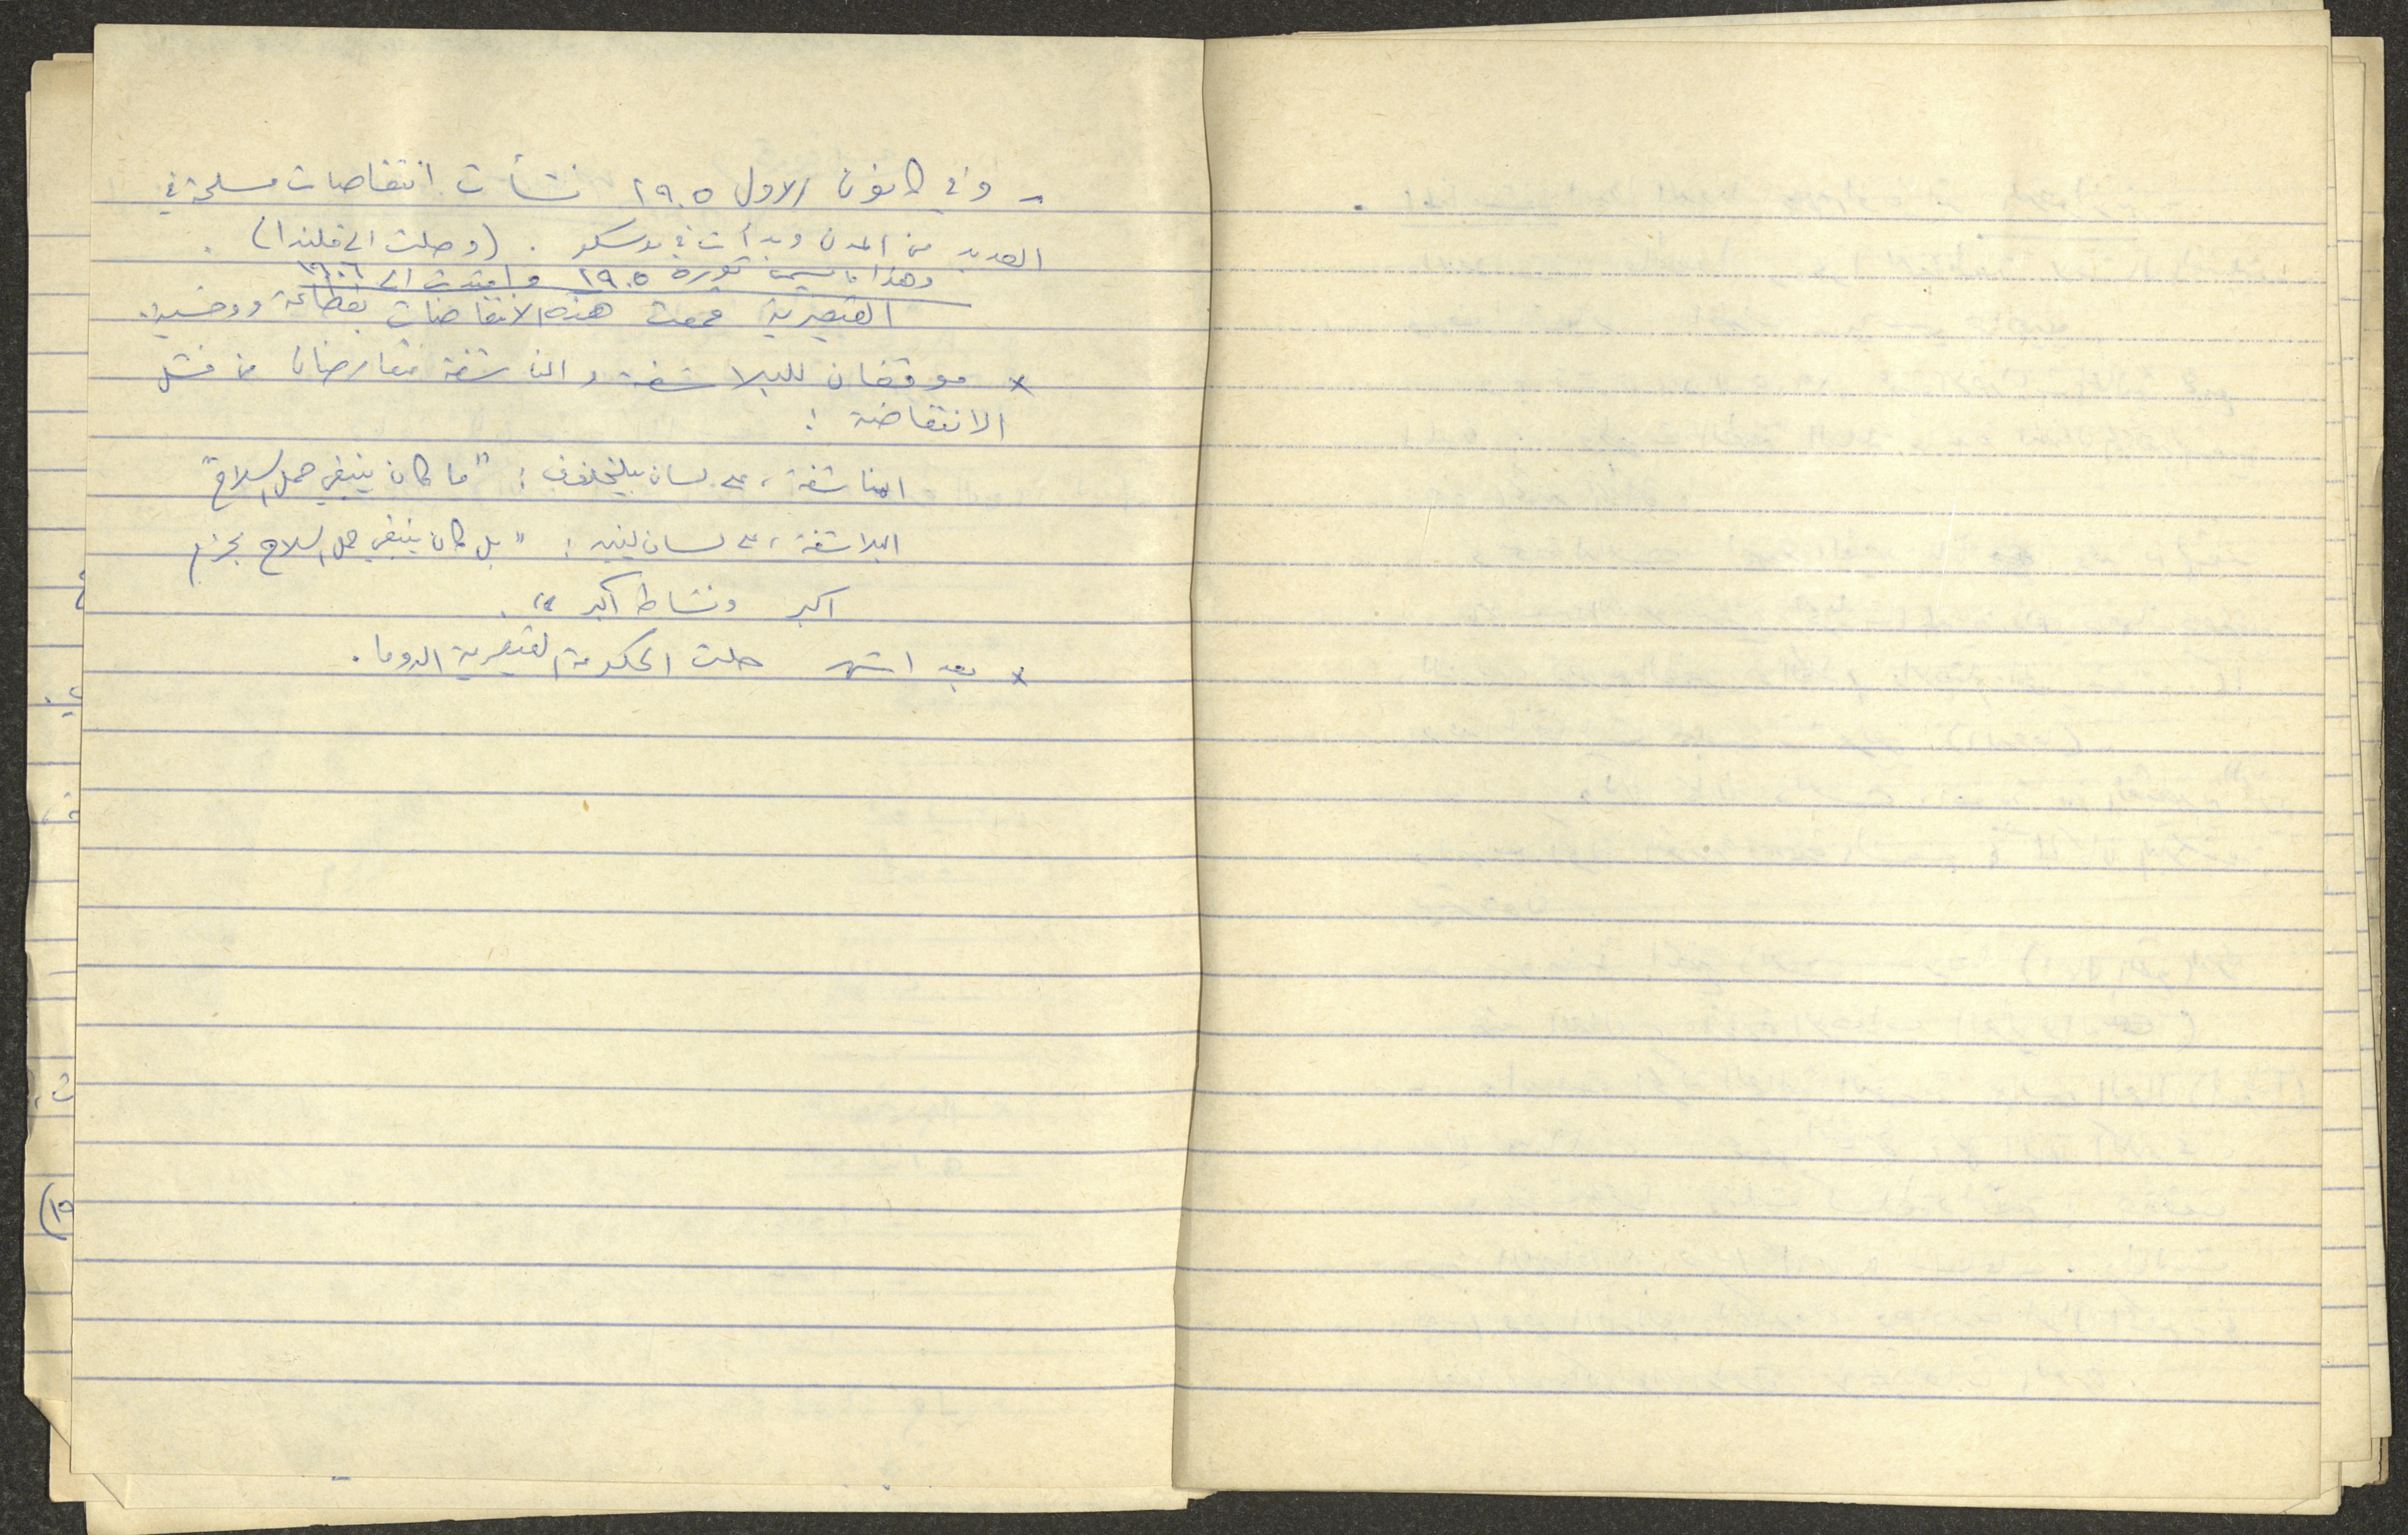 - وفي كانون الاول ١٩٠٥ نشأت انتفاضات مسلحة في
العديد من المدن وبدأت في موسكو . (وصلت الى فنلندا) .
وهذا ما يسمى بثورة ١٩٠٥ وامتدت الى ١٩٠٦
القيصرية قمعت هذه الانتفاضات بفظاعة ووحشية.
× موقفان للبلاشفة والمناشفة متعارضان من فشل
الانتفاضة :
المناشفة، على لسان بليخانوف : "ما كان ينبغي حمل السلاح"
البلاشفة، على لسان لينين : "بل كان ينبغي حمل السلاح بحزم
اكبر ونشاط اكبر".
× بعد اشهر حلت الحكومة القيصرية الدوما.